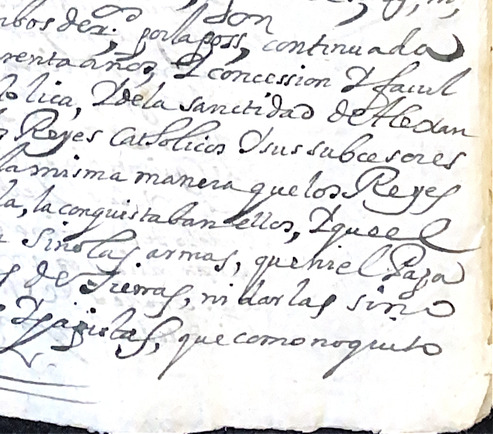 Don
mbos der.s por la poss, continuada
renta años, Y concession Y facul
lolica, Y de la sanctidad de Alexan
s Reyes Catholicos Y sus subcesores
la misma manera que los Reyes
la, la conquistaban ellos, Y que el
sino las armas, que ni el Papa
s de Tierras, ni darlas sino
que como no quito